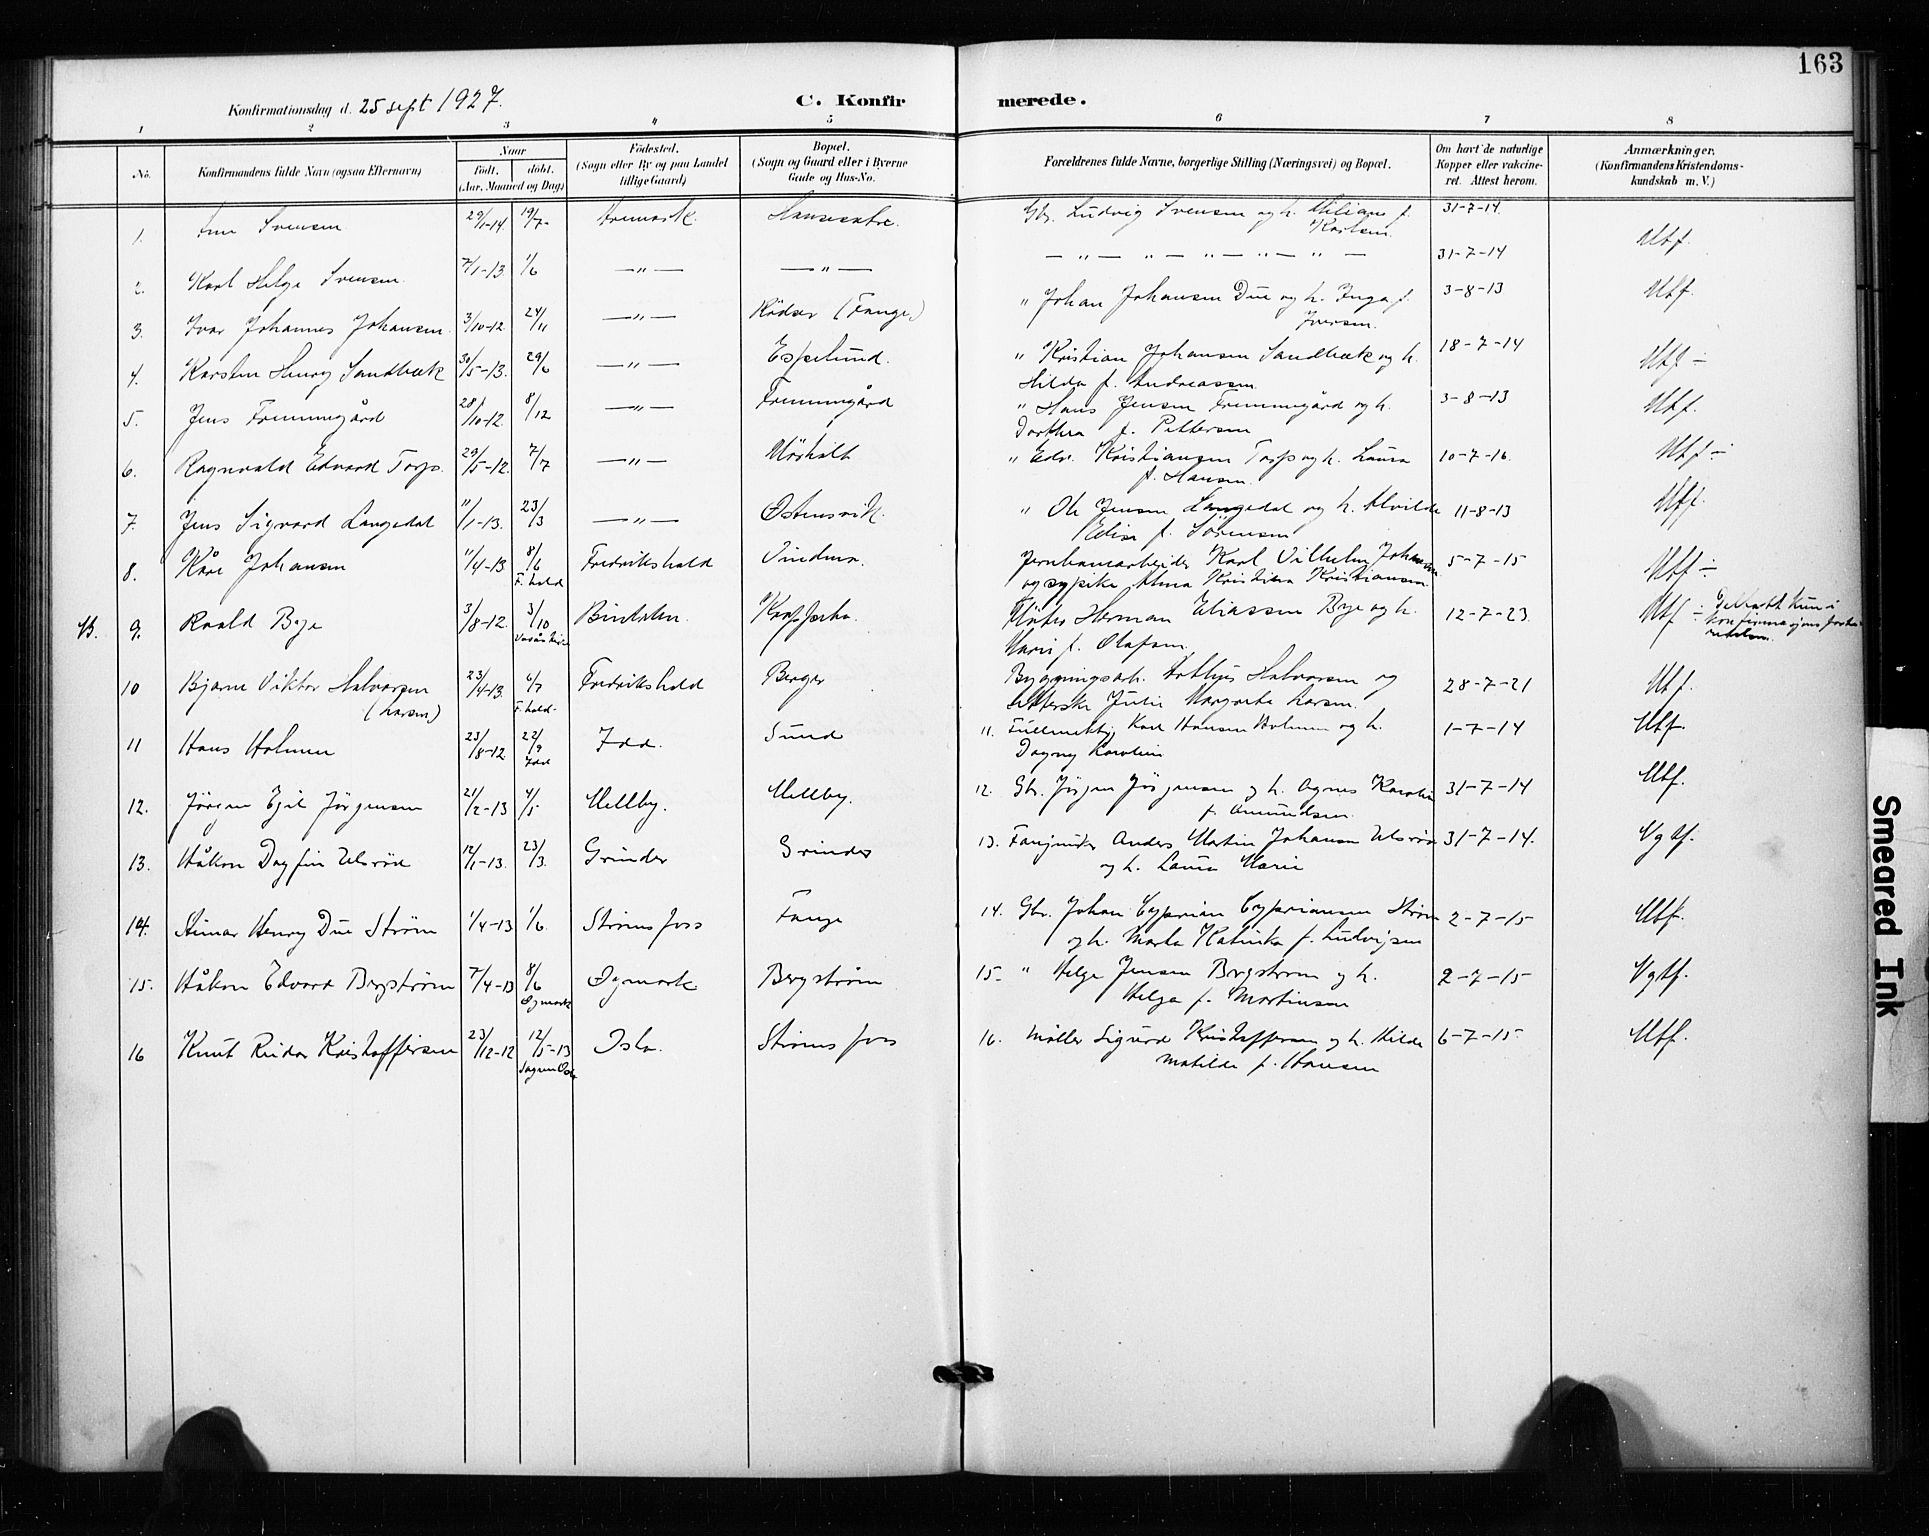 163
Konfirmationsdag d. 25 sept 1927.
C. Konfirmerede.
1 2 3 4 5 6 7 8
No.
Konfirmandens fulde Navn (ogsaa Efternavn)
Naar
født. døbt.
(Aar, Maaned og Dag)
Fødested.
(Sogn eller By og paa Landet
tillige Gaard)
Bopæl.
(Sogn og Gaard eller i Byerne
Gade og Hus-No.
Forældrenes fulde Navne, borgerlige Stilling (Næringsvei) og Bopæl.
Om havt de naturlige
Kopper eller vakcine-
ret. Attest herom.
Anmærkninger.
(Konfirmandens Kristendoms-
kundskab m. V.)
1. Svensen 29/1-14 19/7 Aremark Gbr. Ludvig Svensen og h. f. 31-7-14. Mtf.
Karlsen
2. Karl Helge Svensen 7/1-13 1/6 — " — — " — — " — " — " — " — " — 31-7-14 Mtf.
3. Ivar Johannes Johansen 3/10-12 24/11 — " — (Fange) " Johan Johansen Due og h. Inga f. 3-8-13 Mtf.
Iversen.
4. Karsten Henry Sandbæk 30/5-13. 29/6 — " — Espelund. " Kristian Johansen Sandbæk og h. 18-7-14 Mtf ÷
Hilda f. Andreassen
5. Jens Fremmegård 28/10-12. 8/12 — " — Fremmegård " Hans Jensen Fremmegård og h. 3-8-13 Mtf.
Dorthea f. Pettersen
6. Ragnvald Edvard Torp. 29/5-12. 7/7 — " — " Edv. Kristiansen Torp og h. Laura 10-7-16. Mtf ÷
f. Hansen.
7. Jens Sigvard Langedal 11/1-13. 23/3 — " — Østensvik. " Ole Jensen Langedal og h. Alvilde 11-8-13 Mtf.
Elise f. Sörensen
8. Kåre Johansen 11/4-13 8/6 Fredrikshald Jernbanearbeider Karl Vilhelm Johansen 5-7-15 Mtf ÷
F. hald og sypike Anna Kristina Kristiansen
B. 9. Roald Bye 3/8-12. 3/10 Herman Eliassen Bye og h. 12-7-23. Mtf ÷ Deltatt kun i
Marie f. Olafsen. konfirmasjons forbe-
redelsen.
10 Bjarne Viktor Halvorsen 23/4-13. 6/7 Fredrikshald Berger Bygningsarb. Halvorsen og 28-7-21 Mtf.
(Larsen) F. hald. Julie Margrete Larsen.
11 Hans Holmen 23/8-12 22/9 Idd. Sund 11. Fullmektig Karl Hansen Holmen og h. 1-7-14 Mtf.
Idd Dagny Karoline
12. Jörgen Egil Jörgensen 21/2-13 4/5 Mellby. Mellby. 12. Gbr. Jörgen Jörgensen og h. Agnes Karoline 31-7-14 Mtf.
f. Amundsen.
13. Håkon Dagfin Ulsröd 12/1-13. 23/3. Grinder Grinder 13. Anders Martin Johansen Ulsröd 31-7-14. Vgtf.
og h. Laura Marie
14. Henry Due Strøm 1/4-13 1/6. Strømsfoss Fange 14. Gbr. Johan Cyprian Cypriansen Strøm 2-7-15 Mtf.
og h. Marta Katinka f. Ludvigsen
15. Håkon Edvard Bergstrøm 7/4-13 8/6 Øymark Bergstrøm 15 " Helge Jensen Bergstrøm og h. 2-7-15 Vgtf.
Øymark Helga f. Martinsen
16 Knut Reidar Kristoffersen 23/12-12 12/5-13 Oslo. Strømsfoss 16. Møller Sigurd Kristoffersen og h. Hilda 6-7-15 Mtf.
Matilde f. Hansen
Smeared Ink